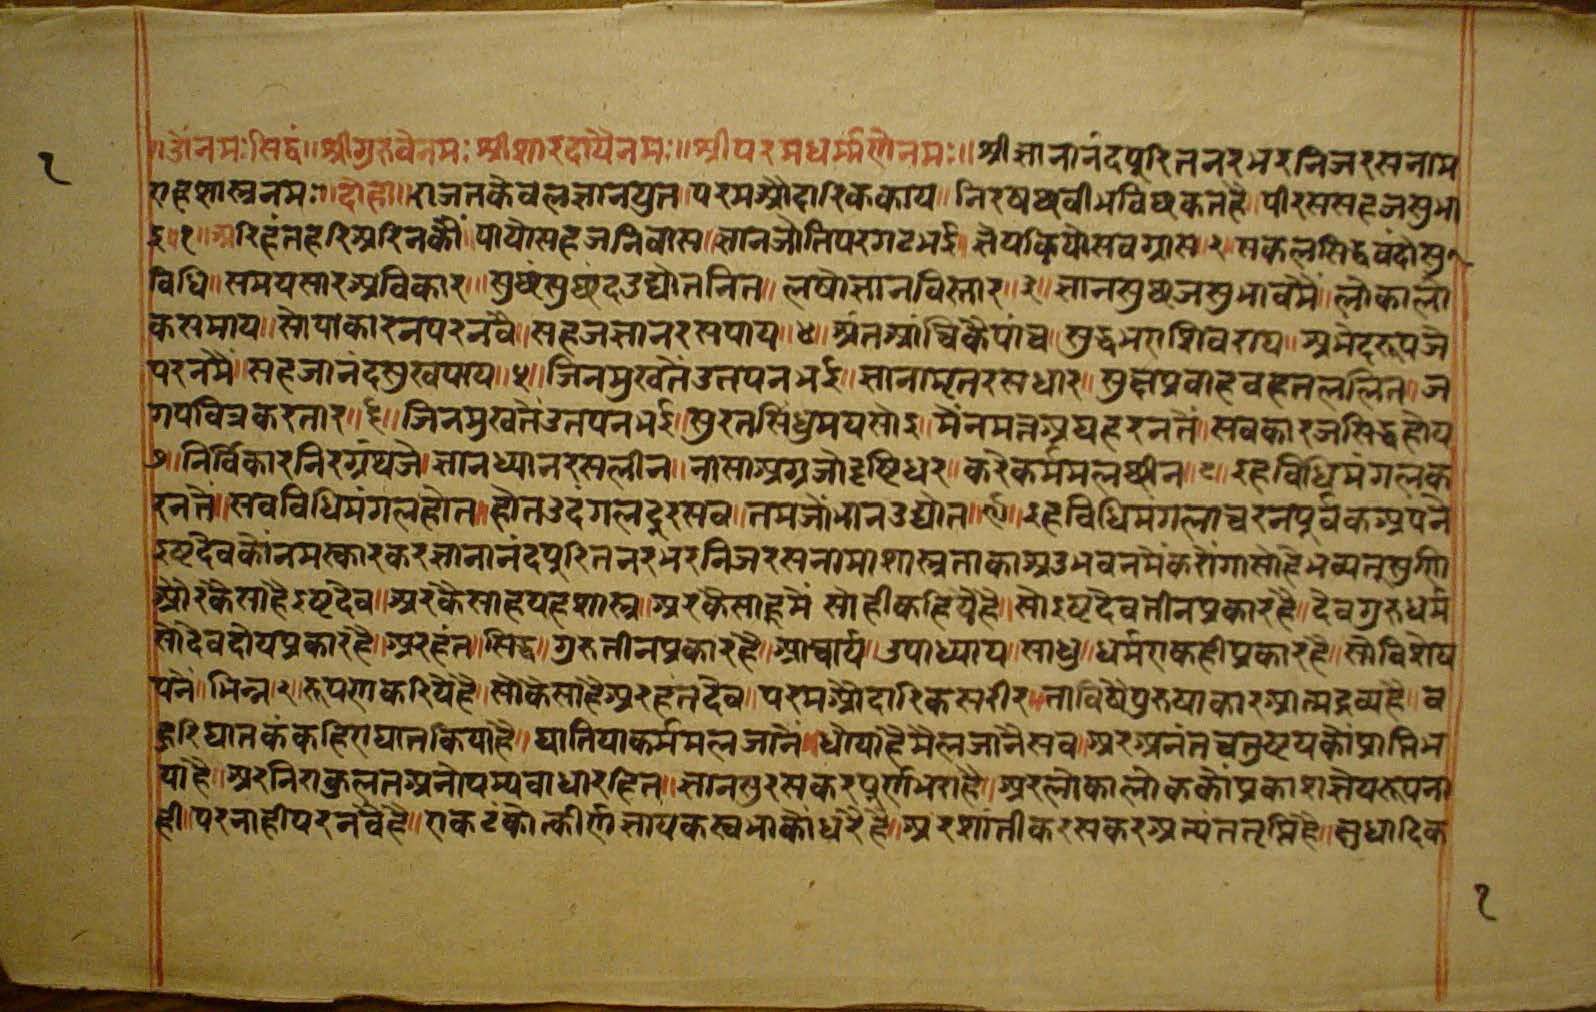 १
॥ॐनमः सिद्धं॥श्रीगुरुवैनमः श्रीशारदायैनमः॥श्रीपरमधर्म्मएैनमः॥श्रीज्ञानानंदपुरितनरभरनिजरसनाम
एहशास्त्रनमः॥दोहा॥राजतकेवलज्ञानयुत॥परमश्रौदारिककाय॥निरषछवीभविछकतहै॥पीरससहजसुभा
इ॥१॥अरिहंतहरिअरिनकौं॥पायौसहजनिवास॥ज्ञानजोतिपरगटभई॥ज्ञेयकियौसवग्रास॥२॥सकलसिद्धवंदौसु
विधि॥समयसारअविकार॥सुछंसुछंदउद्योतनित॥लषौज्ञानविस्तार॥३॥ज्ञानसुछजसुभावमैं॥लोकालो
कसमाय॥सोयाकारनपरनवै॥सहजज्ञानरसपाय॥४॥अंतआंचिकैपांच॥सुद्धभएशिवराय॥अभेदरूपजे
परनमैं॥सहजानंदसुखपाय॥५॥जिनमुखतैंउतपनभई॥ज्ञानामृतरसधार॥सुछप्रवाहवहतललित॥ज
गपवित्रकरतार॥६॥जिनमुखतैंउतपनभई॥सुरतसिंधुमयसोइ॥मैंनमतअघहरनतैं॥सवकारजसिद्धहोय
७॥निर्विकारनिरग्रंथजे॥ज्ञानध्यानरसलीन॥नासाअग्रजोदृष्टिधर॥करैकर्ममलछीन॥८॥इहविधिमंगलक
रनतैं॥सवविधिमंगलहोत॥होतउदंगलदूरसव॥तमजोंभानउद्योत॥९॥इहविधिमंगलाचरनपूर्वकअपने
इष्टदेवकौनमस्कारकरज्ञानानंदपुरितनरभरनिजरसनामाशास्त्रताकाअउभवनमैंकरौंगासोहेभव्यतूसुणि॥
औरकैसाहैइष्टदेव॥अरकैसाहैयहशास्त्र॥अरकैसाहूमैं सोहीकहियेहै॥सोइष्टदेवतीनप्रकारहै॥देवगुरुधर्म
सोदेवदोयप्रकारहै॥अरहंत॥सिद्ध॥गुरुतीनप्रकारहै॥आचार्य॥उपाध्याय॥साधु॥धर्मएकहीप्रकारहै॥सोविशेष
पनें॥भिन्न२॥रूपएाकरियेहै॥सोकैसाहैअरहंतदेव॥परमऔदारिकसरीर॥ताविषैपुरुषाकारआत्मद्रव्यहै॥व
हुरिघातकंकहिएघातकियाहै॥घातियाकर्ममलजानैं॥धोयाहैमैलजानैसव॥अरअनंतचतुष्टयकौंप्राप्तिभ
याहै॥अरनिराकुलतअनोपम्यवाधारहित॥ज्ञानसुरसकरपूर्णभराहै॥अरलोकालोककौंप्रकाशज्ञेयरूपना
ही॥परनाहीपरनवैहै॥एकटंकोत्कीर्णज्ञायकस्वभाकौंधरैहै॥अरशांतीकरसकरअत्यंततृप्तिहै॥क्षुधादिक
१